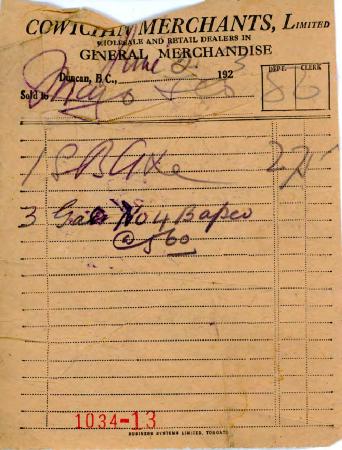 COWICHAN MERCHANTS, LIMITED
WHOLESALE AND RETAIL DEALERS IN
GENERAL MERCHANDISE
Duncan, B.C., June 2 1923
DEPT. CLERK
Sold to Mayo
1 S B Axe
3 Gals No 4 Bapco
@ 5 60
1034-13
BUSINESS SYSTEMS LIMITED, TORONTO